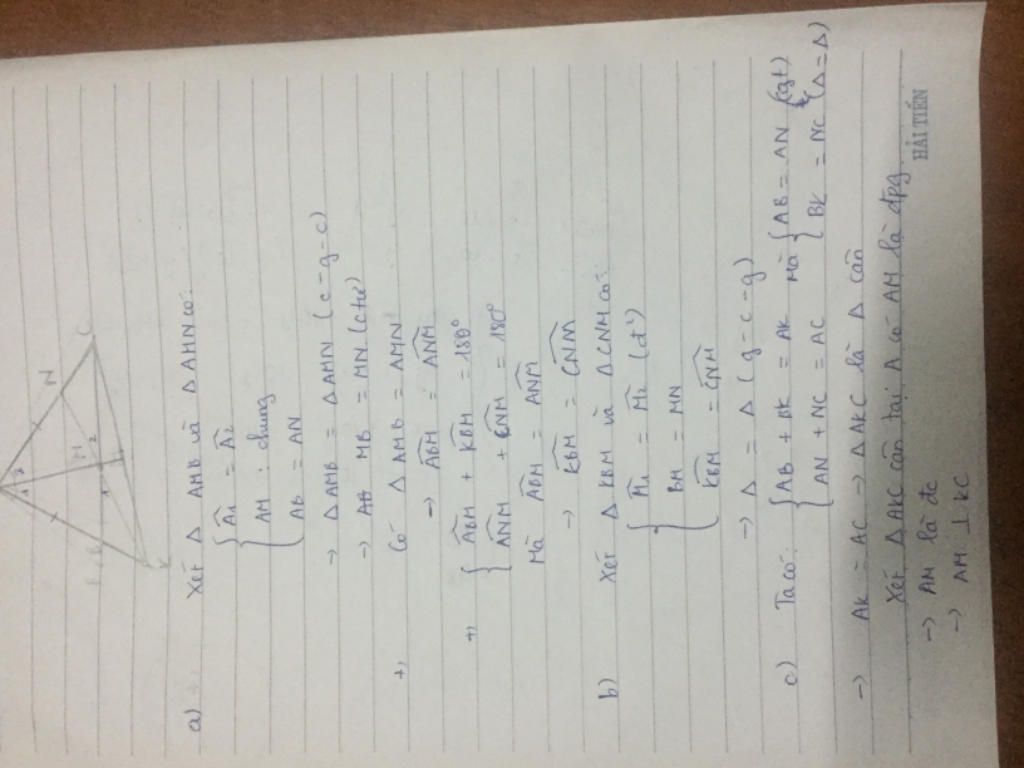 N
C
M
2
1
2
1
B
K
a) Xét Δ AMB và Δ AMN có:
{ Â1 = Â2
AM : chung
AB = AN
→ Δ AMB = Δ AMN (c-g-c)
→ MB = MN (ctư)
+, Có Δ AMB = AMN
→ ABM̂ = ANM̂
+, { ABM̂ + KBM̂ = 180°
ANM̂ + CNM̂ = 180°
Mà ABM̂ = ANM̂
→ KBM̂ = CNM̂
b) Xét Δ KBM và Δ CNM có:
{ M̂1 = M̂2 (đ²)
BM = MN
KBM̂ = CNM̂
→ Δ = Δ (g-c-g)
c) Ta có: { AB + BK = AK Mà { AB = AN (gt)
AN + NC = AC BK = NC (Δ = Δ)
→ AK = AC → Δ AKC là Δ cân
Xét Δ AKC cân tại A có AM là đpg
→ AM là đc
→ AM ⊥ KC
HẢI TIẾN